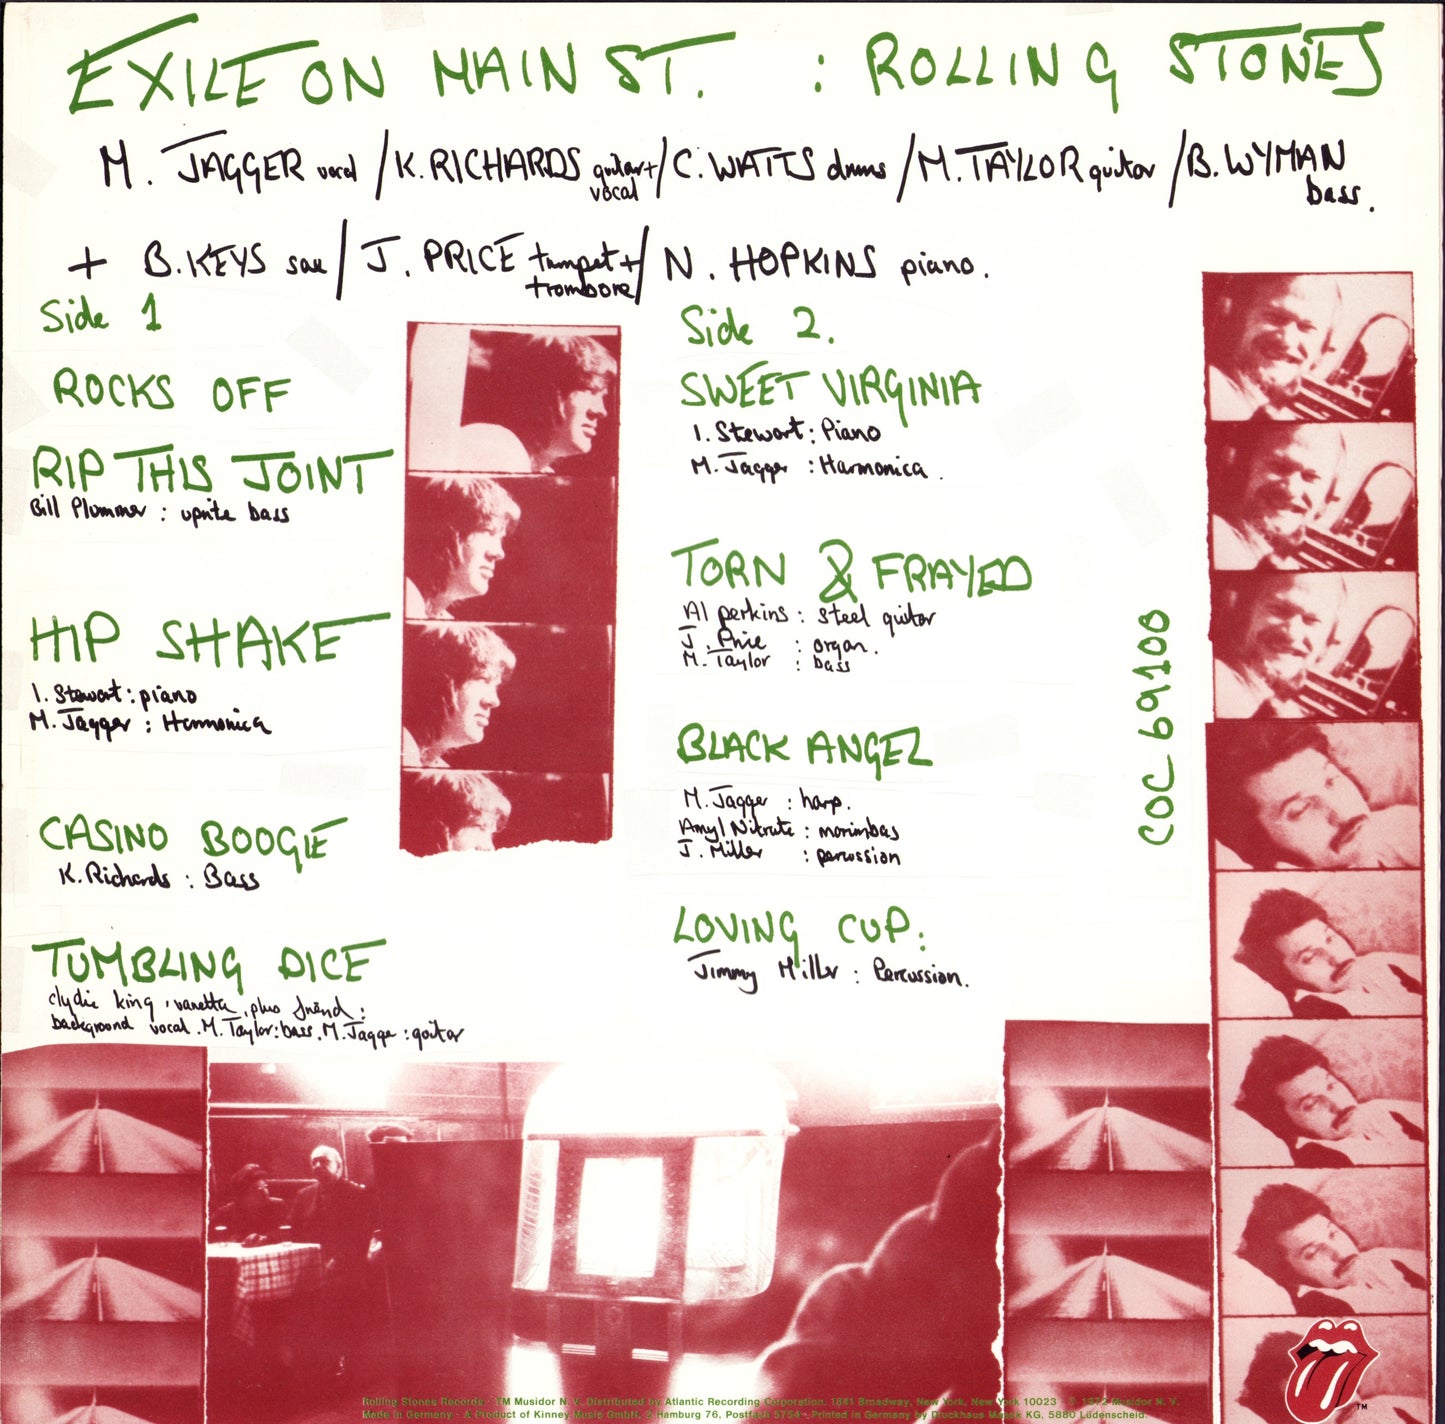 EXILE ON MAIN ST. : ROLLING STONES
M. JAGGER vocal / K. RICHARDS guitar + vocal / C. WATTS drums / M. TAYLOR guitar / B. WYMAN bass.
+ B. KEYS sax / J. PRICE trumpet + trombone / N. HOPKINS piano.
Side 1
ROCKS OFF
RIP THIS JOINT
Bill Plummer : uprite bass
HIP SHAKE
I. Stewart : piano
M. Jagger : Harmonica
CASINO BOOGIE
K. Richards : Bass
TUMBLING DICE
clydie king, vanetta, plus friend :
background vocal. M. Taylor : bass. M. Jagger : guitar
Side 2.
SWEET VIRGINIA
I. Stewart : Piano
M. Jagger : Harmonica.
TORN & FRAYED
Al perkins : steel guitar
J. Price : organ.
M. Taylor : bass
BLACK ANGEL
M. Jagger : harp.
Amyl Nitrate : marimbas
J. Miller : percussion
LOVING CUP :
Jimmy Miller : Percussion.
COC 69100
Rolling Stones Records - TM Musidor N. V. Distributed by Atlantic Recording Corporation, 1841 Broadway, New York, New York 10023 - ℗ 1972 Musidor N. V.
Made in Germany - A Product of Kinney Music GmbH, 2 Hamburg 76, Postfach 5754 - Printed in Germany by Druckhaus Maack KG, 5880 Lüdenscheid.
TM